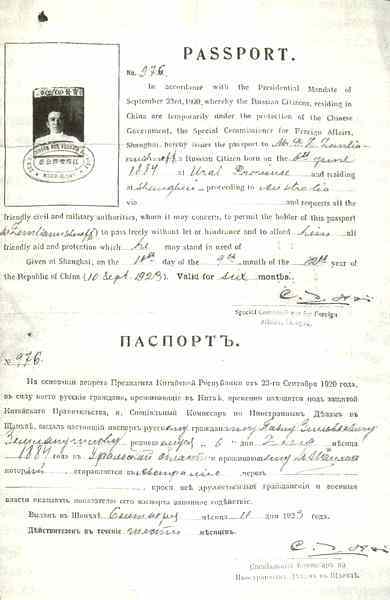 PASSPORT.
No. 976.
In accordance with the Presidential Mandate of
September 23rd, 1920, whereby the Russian Citizens, residing in
China are temporarily under the protection of the Chinese
Government, the Special Commissioner for Foreign Affairs,
Shanghai, hereby issues the passport to Mr.
a Russian Citizen born on the 6th June
1887 at Ural Province and residing
at Shanghai proceeding to Australia
via and requests all the
friendly civil and military authorities, whom it may concern, to permit the holder of this passport
to pass freely without let or hindrance and to afford him all
friendly aid and protection which he may stand in need of
Given at Shanghai, on the 10th day of the 9th month of the 12th year of
the Republic of China (10 Sept. 1923). Valid for six months.
Special Commissioner for Foreign
Affairs,
ПАСПОРТЪ.
№ 976.
На основаніи декрета Президента Китайской Республики отъ 23-го Сентября 1920 года,
въ силу коего русскіе граждане, проживающіе въ Китаѣ, временно находятся подъ защитой
Китайскаго Правительства, я, Спеціальный Комиссаръ по Иностраннымъ Дѣламъ въ
Шанхаѣ, выдалъ настоящій паспортъ русскому гражданину Павлу
родившемуся „ 6 “ дня Іюня мѣсяца
1887 года въ Уральской области и проживающему
который отправляется въ Австралію черезъ
прося всѣ дружественныя гражданскія и военныя
власти оказывать показателю сего паспорта законное содѣйствіе.
Выданъ въ Шанхаѣ Сентября мѣсяца дня 1923 года.
Дѣйствителенъ въ теченіе шести мѣсяцевъ.
Спеціальный Комиссаръ по
Иностраннымъ Дѣламъ въ Шанхаѣ.